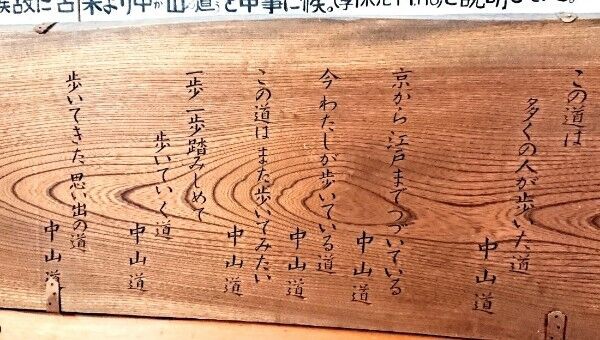 故に古来より中山道と申事に候。
この道は
多くの人が歩いた道
中山道
京から江戸までつづいている
中山道
今わたしが歩いている道
中山道
この道はまた歩いてみたい
中山道
一歩一歩踏みしめて
歩いていく道
中山道
歩いてきた思い出の道
中山道